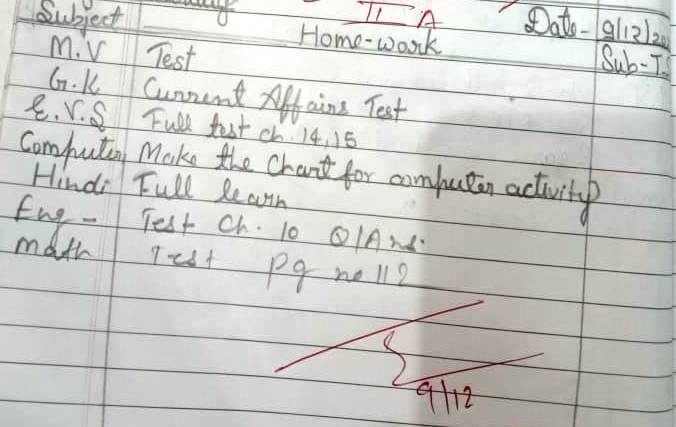 II A
Subject Home-work Date- 9/12/20
M.V Test Sub-T.
G.K Current Affairs Test
E.V.S Full test ch. 14,15
Computer Make the Chart for computer activity
Hindi Full learn
Eng - Test Ch. 10 Q/Ans.
Math Test pg no 112
9/12